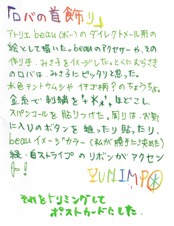 「ロバの首飾り」
アトリエbeau(ボー)のダイレクトメール用の
絵として描いた。beauのアクセサリー、その
作り手、みさろをイメージした。とくにむらさき
のロバは、みさろにピッタリと思った。
水色チントウムシやイチゴ柄?のちょうちょ。
金糸で刺繍を ほどこし、
スパンコールを貼りつけた。周りは、お気
に入りのボタンを縫ったり貼ったり。
beauイメージカラー(私が勝手に決めた)
緑・白ストライプのリボンがアクセン
ト!
YUNIMPO
それをトリミングして
ポストカードにした。